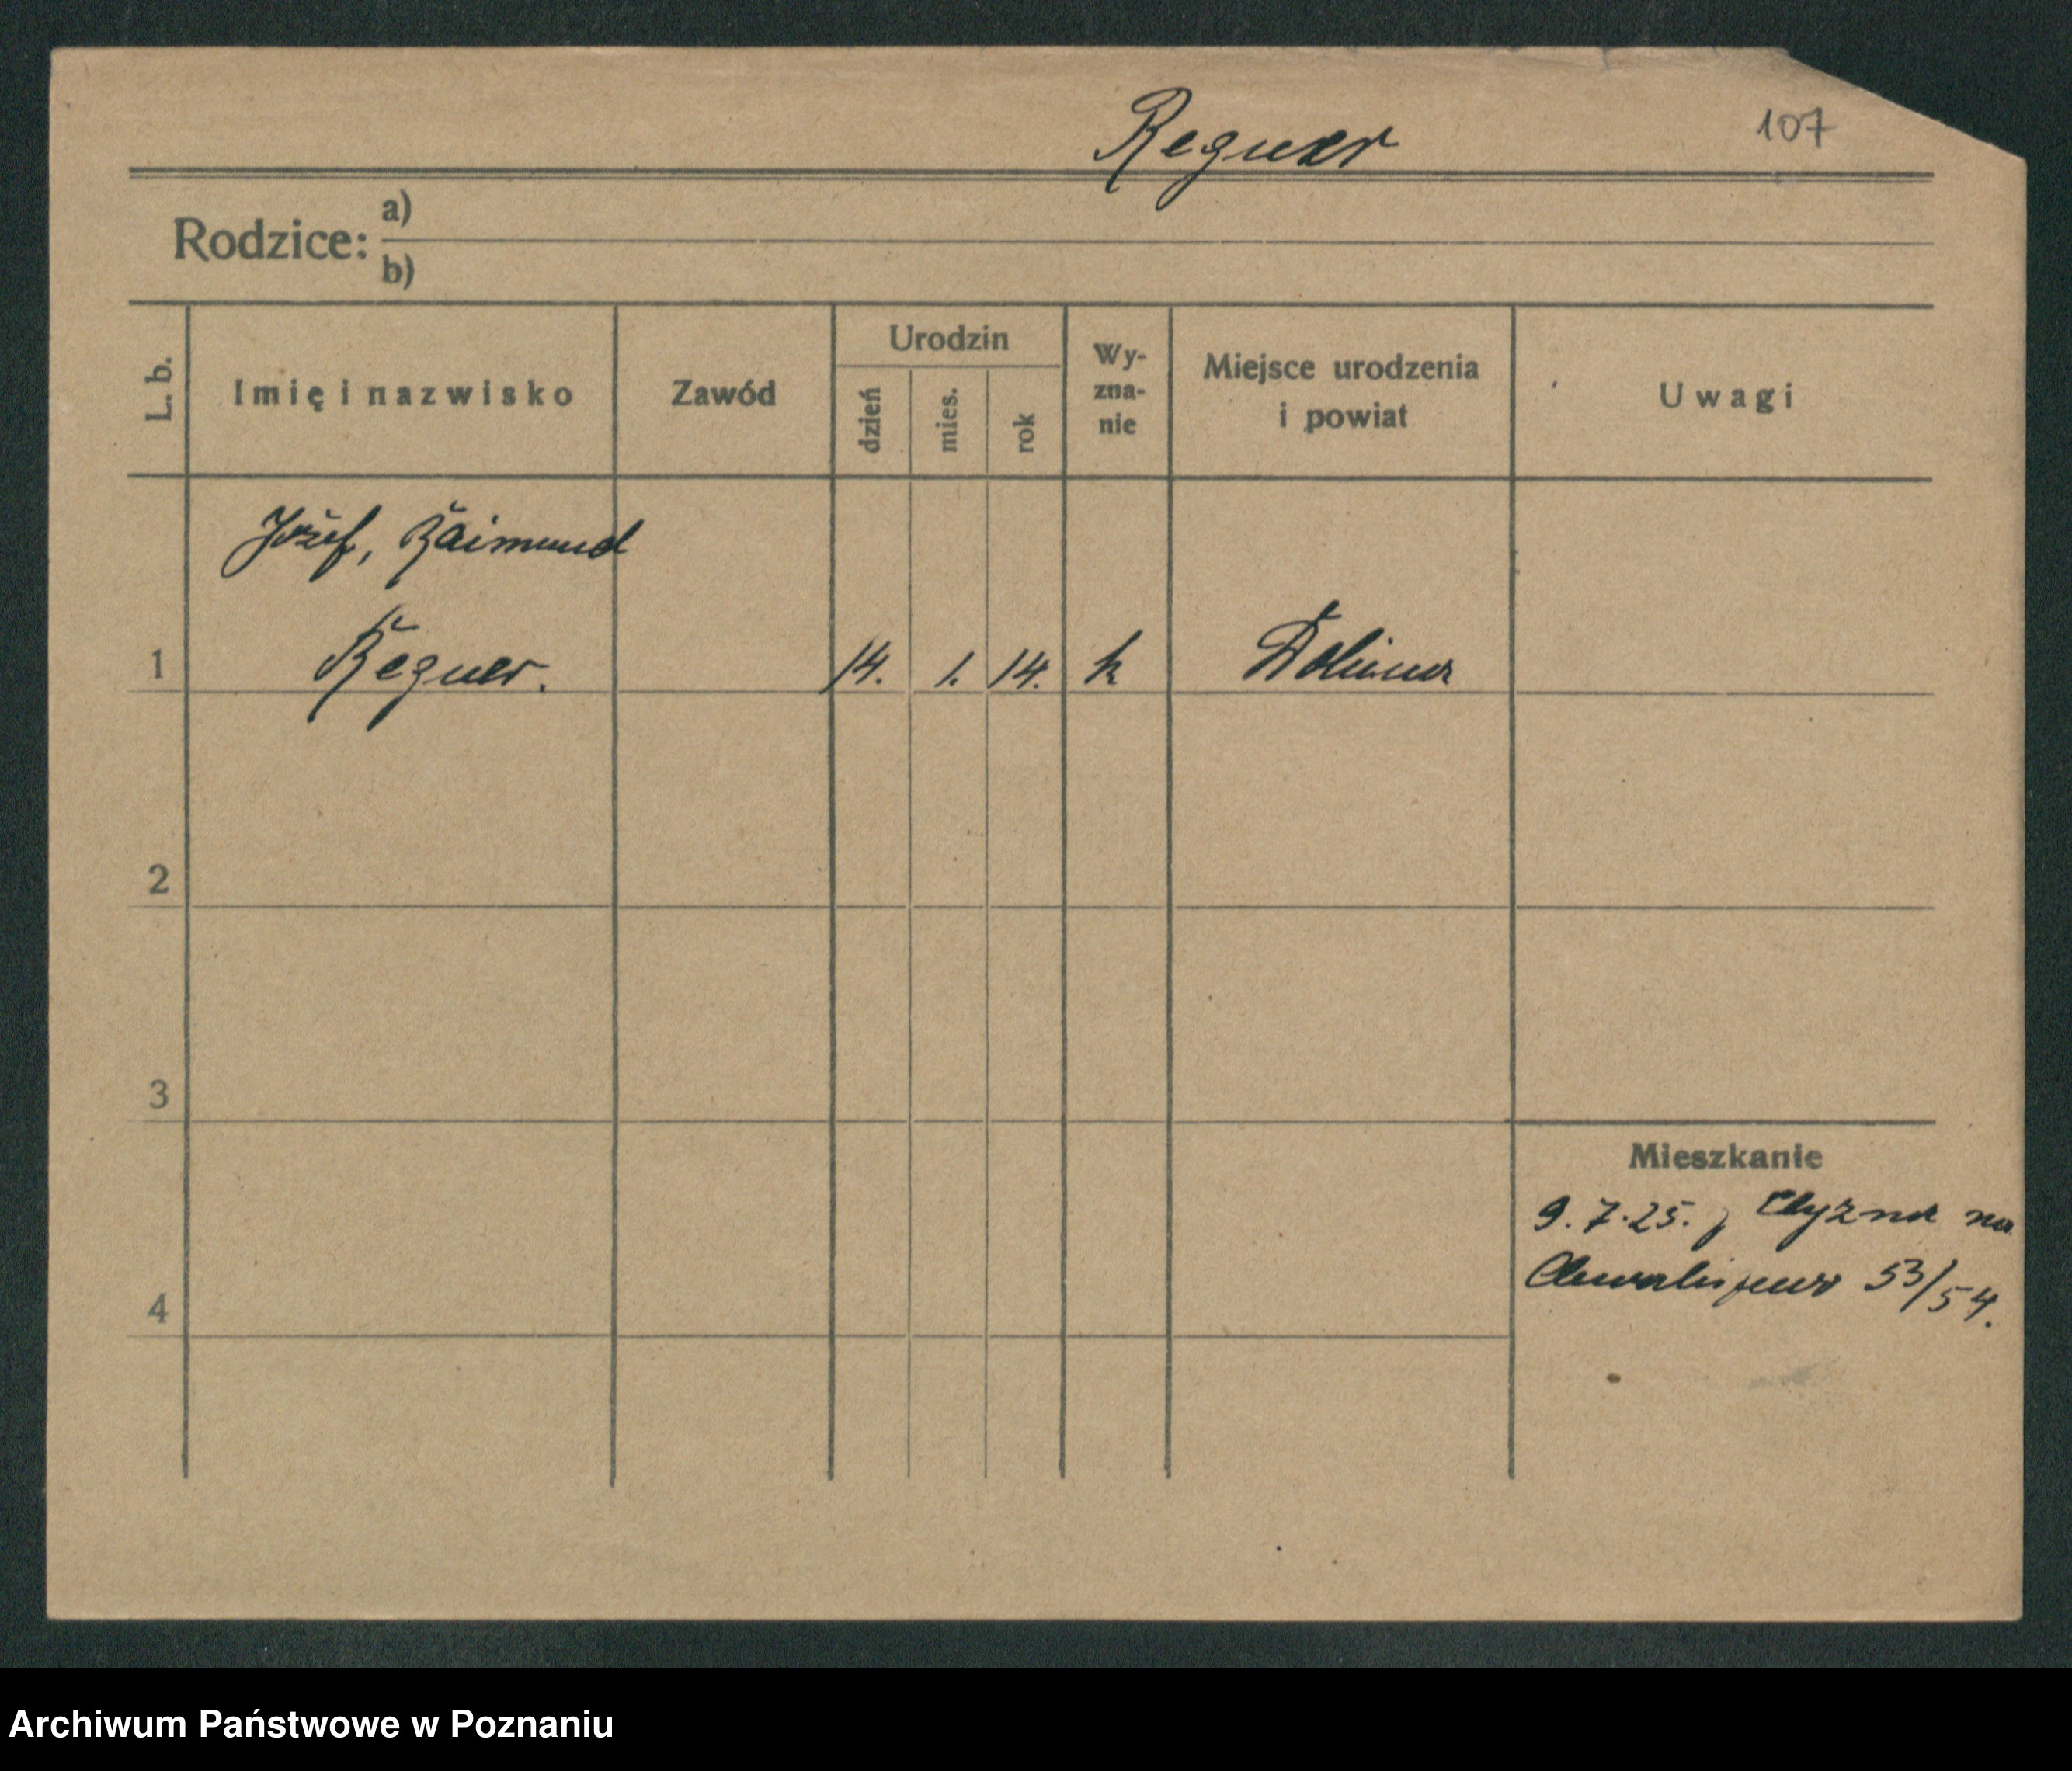 Regner
107
Rodzice: a)
b)
L. b.
Imię i nazwisko
Zawód
Urodzin
dzień
mies.
rok
Wy-
zna-
nie
Miejsce urodzenia
i powiat
Uwagi
Józef, Raimund
1 Regner. 14. 1. 14. k Dolina
2
3
4
Mieszkanie
9. 7. 25. z na
Chwaliszewo 53/54.
Archiwum Państwowe w Poznaniu